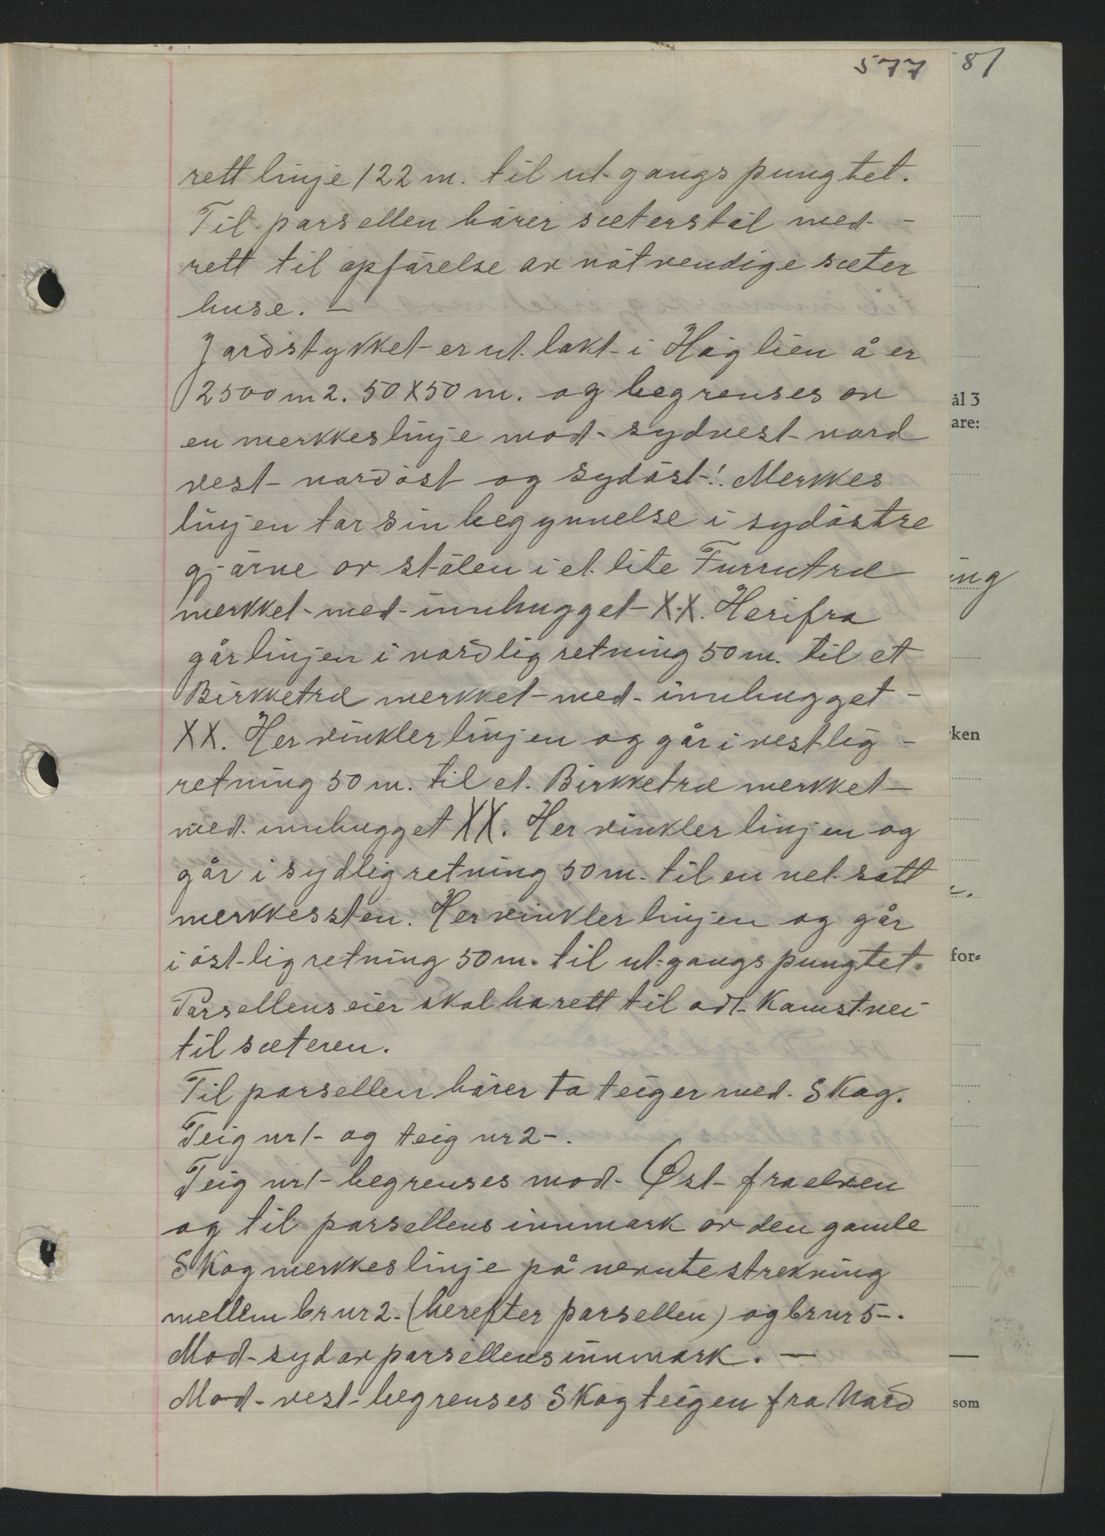 577
81
rett linje 122 m. til ut-gangspungtet.
Til parsellen hårer sæterstøl med-
rett til opfårelse av nåtvendige sæter
huse. —
Jordstykket er ut. lakt i Håglien å er
2500 m2. 50X50 m. og begrenses av
en merkkeslinje mod- sydvest- nord
vest- nordåst og sydåst-!. Merkkes
linjen tar sin begynnelse i sydåstre
gjårne av stølen i et. lite Furrutræ
merkket- med- innhugget- X.X. Herifra
går linjen i nordlig retning 50 m. til et
Birkketræ merkket- med- innhugget-
XX. Her vinkler linjen og går i vestlig-
retning 50 m. til et. Birkketræ merkket-
med. innhugget XX. Her vinkler linjen og
går i sydlig retning 50 m. til en net. satt
merkkessten. Her vinkler linjen og går
i åst-lig retning 50 m. til ut-gangspungtet.
Parsellens eier skal ha rett til adt- Kamst. vei
til sæteren.
Til parsellen hårer to teiger med- Skog.
Teig nr 1- og teig nr 2-.
Teig nr 1- begrenses mod- Øst- fra elven
og til parsellens innmark av den gamle
Skogmerkkeslinje på nevnte strekning
mellem br nr 2. (herefter parsellen) og br nr 5-.
Mod- syd av parsellens innmark. —
Mod- vest- begrenses Skogteigen fra Nord
ål 3
are:
ing
ken
for=
som